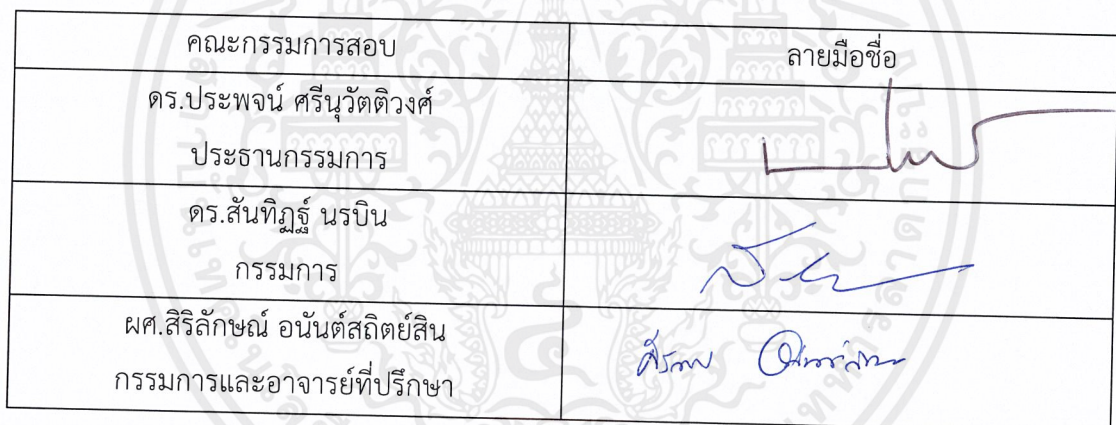 คณะกรรมการสอบ ลายมือชื่อ
ดร.ประพจน์ ศรีนุวัตติวงศ์
ประธานกรรมการ
ดร.สันทิฏฐ์ นรบิน
กรรมการ
ผศ.สิริลักษณ์ อนันต์สถิตย์สิน
กรรมการและอาจารย์ที่ปรึกษา